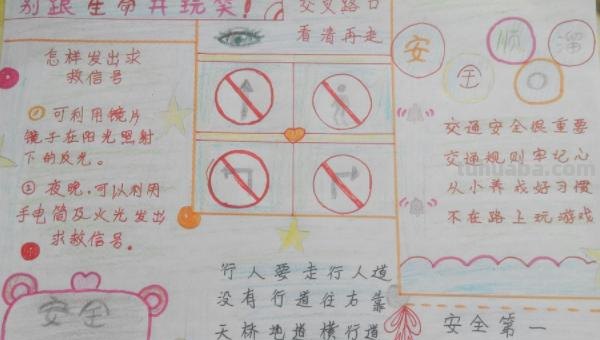 别跟生命开玩笑!
怎样发出求
救信号
① 可利用镜片
镜子在阳光照射
下的反光。
② 夜晚,可以利用
手电筒及火光发出
求救信号。
安全
交叉路口
看清再走
行人要走行人道
没有行道往右靠
天桥地道横行道
安 全 顺 溜
交通安全很重要
交通规则牢记心
从小养成好习惯
不在路上玩游戏
tuhuaba.com
安全第一